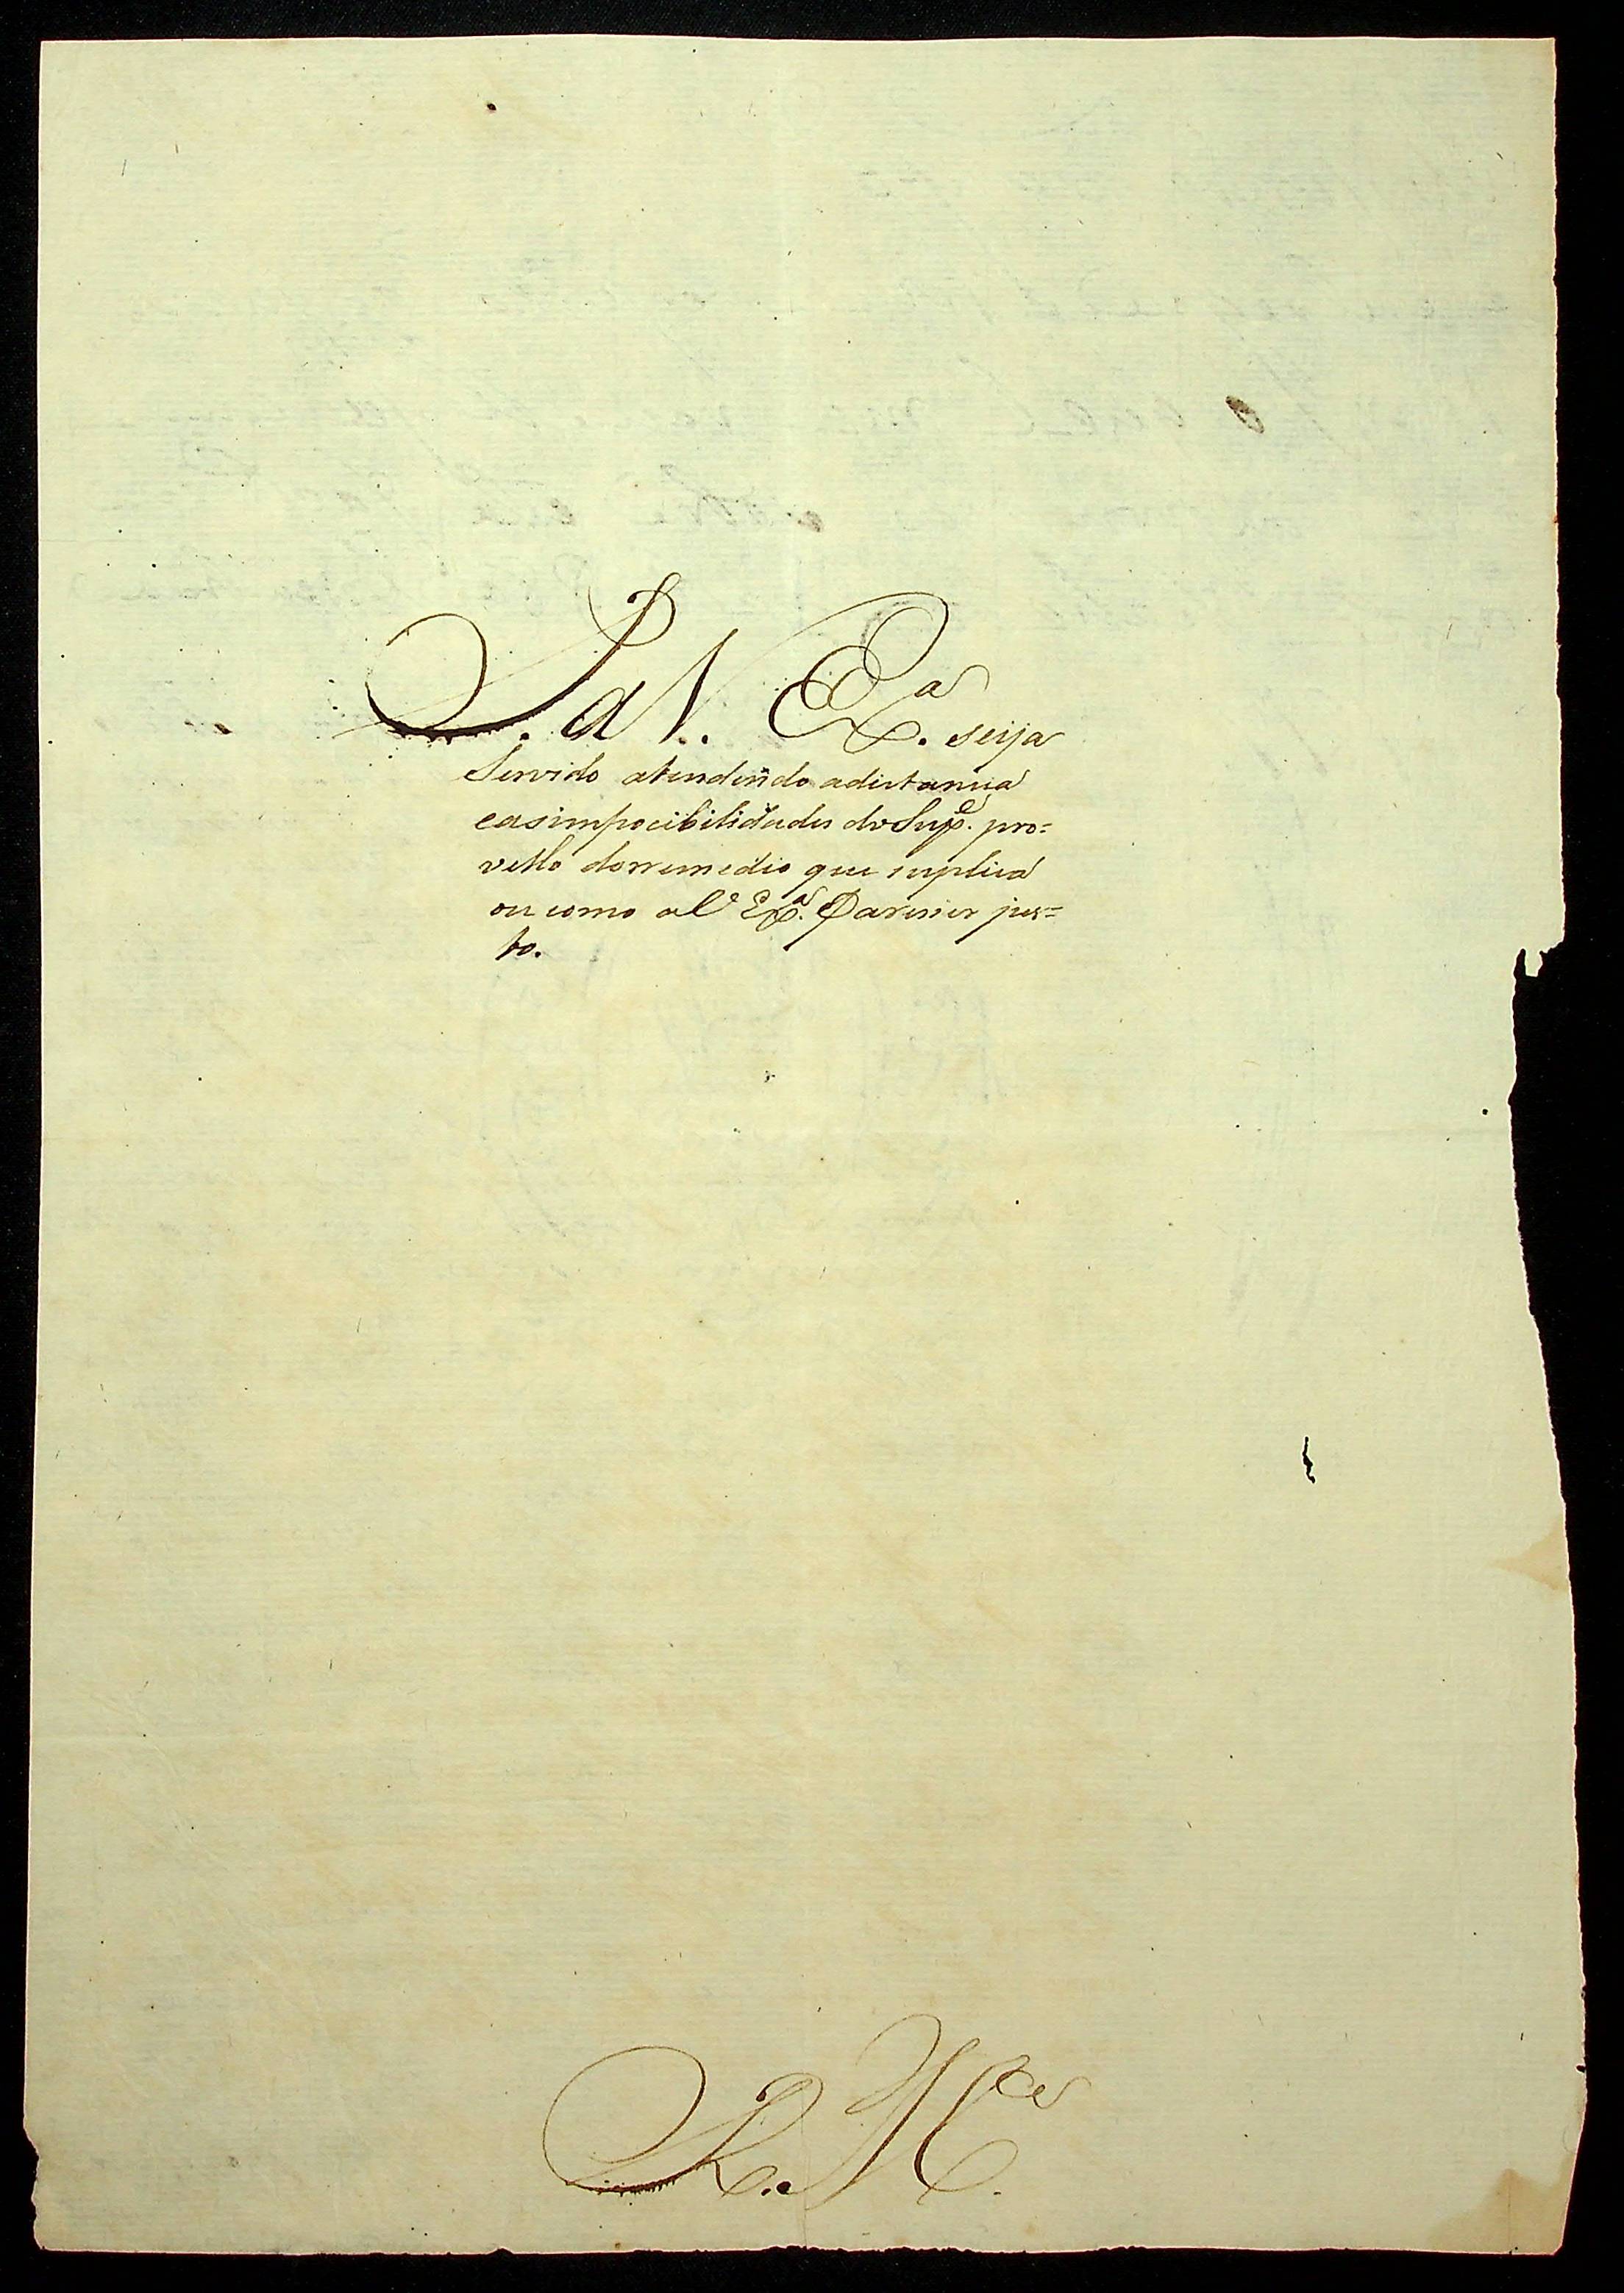 P. a V. Exª. seija
Servido atendendo adistancia
easimpocibilidades do Supe. pro=
vello dorremedio que suplica
ou como a Vª Exª. Paresser jus=
to.
R. Mce.